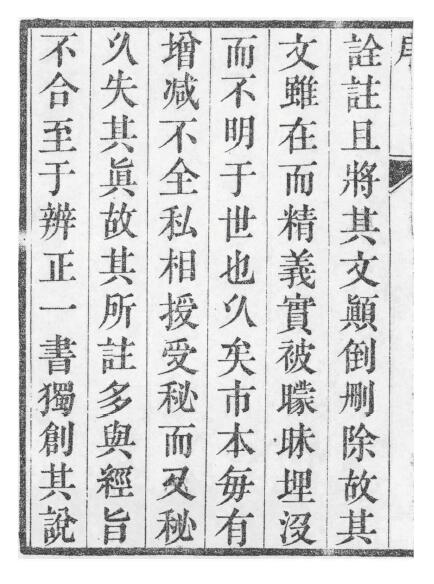 詮註且將其文顛倒刪除故其
文雖在而精義實被矇昧埋沒
而不明于世也久矣市本每有
增减不全私相授受秘而又秘
久失其眞故其所註多與經旨
不合至于辨正一書獨創其說